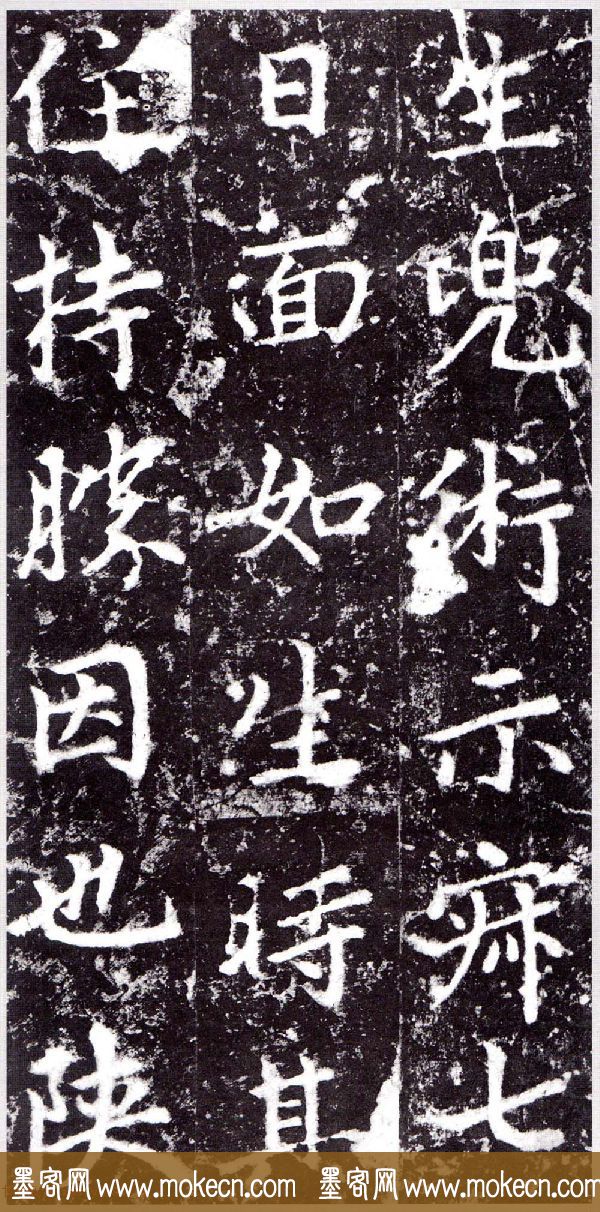 生兜術示寂七
日面如生時其
住持勝因也陝
墨客网 www.mokecn.com 墨客网 www.mokecn.com